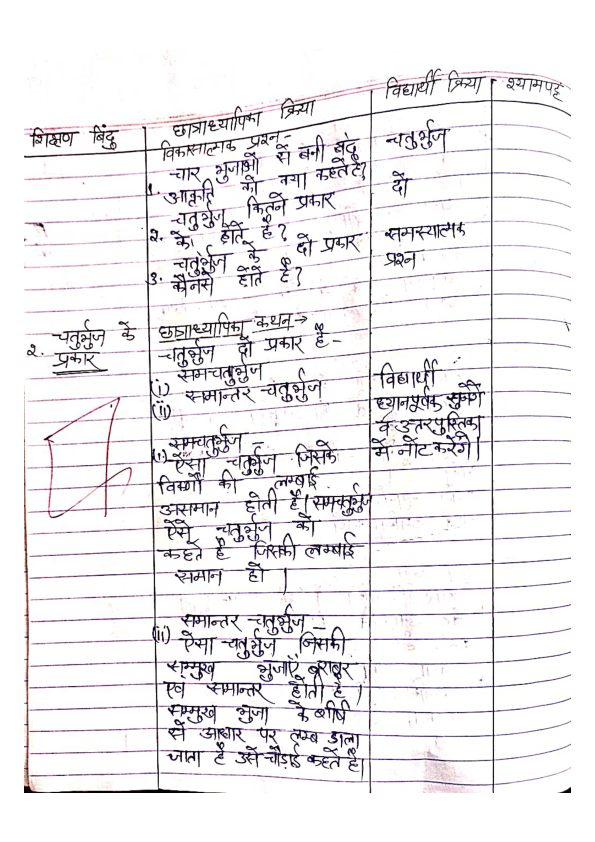 शिक्षण बिंदु
छात्राध्यापिका क्रिया
विद्यार्थी क्रिया
श्यामपट्ट
विकासात्मक प्रश्न-
1. चार भुजाओं से बनी बंद
आकृति को क्या कहते है?
2. चतुर्भुज कितने प्रकार
के होते है?
3. चतुर्भुज के दो प्रकार
कौनसे होते है?
चतुर्भुज
दो
समस्यात्मक
प्रश्न
2. चतुर्भुज के
प्रकार
छात्राध्यापिका कथन→
चतुर्भुज दो प्रकार है-
(i) समचतुर्भुज
(ii) समान्तर चतुर्भुज
विद्यार्थी
ध्यानपूर्वक सुनेंगे
व उत्तरपुस्तिका
में नोट करेंगे।
समचतुर्भुज -
(i) ऐसा चतुर्भुज जिसके
विकर्णो की लम्बाई
असमान होती है। समचतुर्भुज
ऐसे चतुर्भुज को
कहते है जिसकी लम्बाई
समान हो।
समान्तर चतुर्भुज -
(ii) ऐसा चतुर्भुज जिसकी
सम्मुख भुजाएँ बराबर
एवं समान्तर होती है।
सम्मुख भुजा के शीर्ष
से आधार पर लम्ब डाला
जाता है उसे चौड़ाई कहते है।